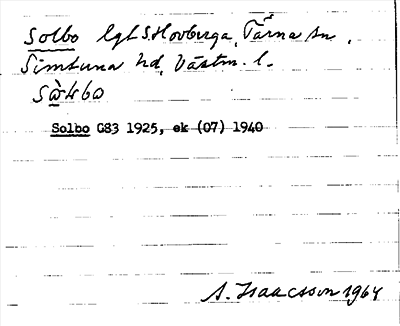 Solbo lgt S. Hovberga, Tärna sn,
Simtuna hd, Västm. l.
Sò4bo
Solbo GS3 1925, ek (07) 1940
A. Isaacsson 1964